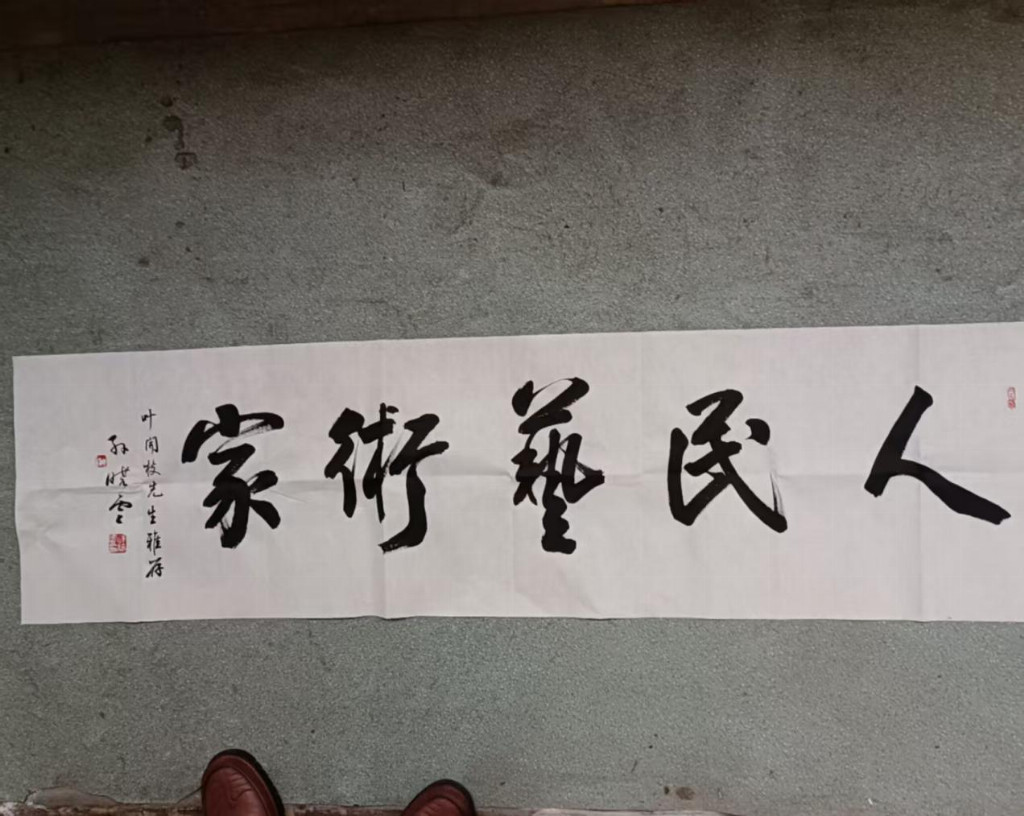 人民藝術家
叶闰枝先生雅存
孙晓云